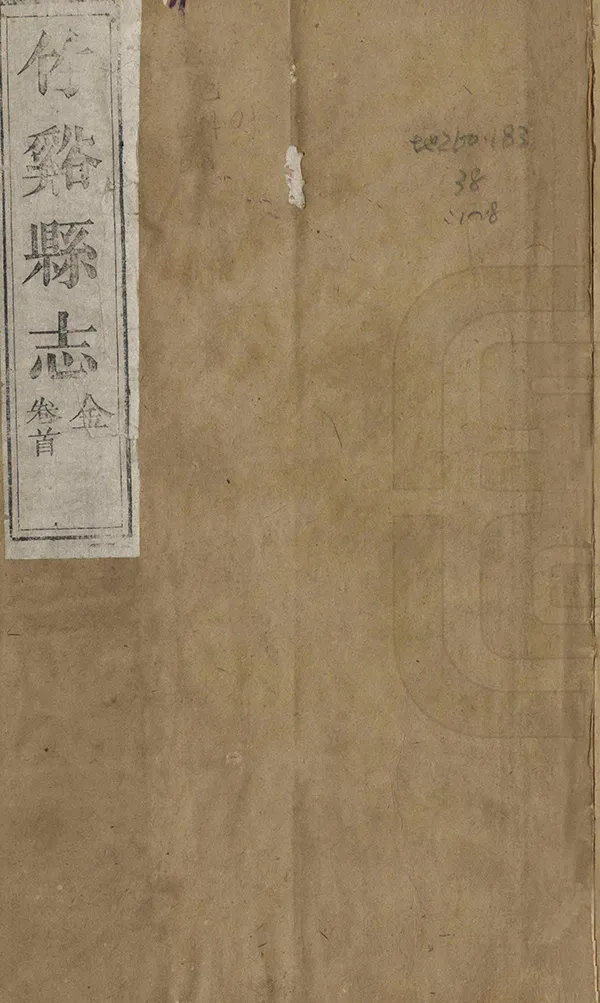 竹谿縣志
金
卷首
地260.183
38
:1~8